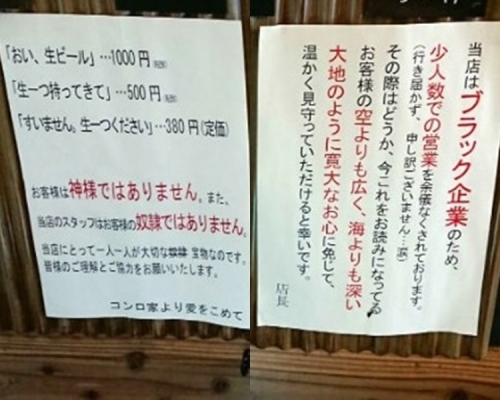 「おい、生ビール」…1000円(税別)
「生一つ持ってきて」…500円(税別)
「すいません。生一つください」…380円(定価)
お客様は神様ではありません。また、
当店のスタッフはお客様の奴隷ではありません。
当店にとって一人一人が大切な奴隷 宝物なのです。
皆様のご理解とご協力をお願いいたします。
コンロ家より愛をこめて
当店はブラック企業のため、
少人数での営業を余儀なくされております。
(行き届かず、申し訳ございません…涙)
その際はどうか、今これをお読みになってる
お客様の空よりも広く、海よりも深い
大地のように寛大なお心に免じて、
温かく見守っていただけると幸いです。
店長